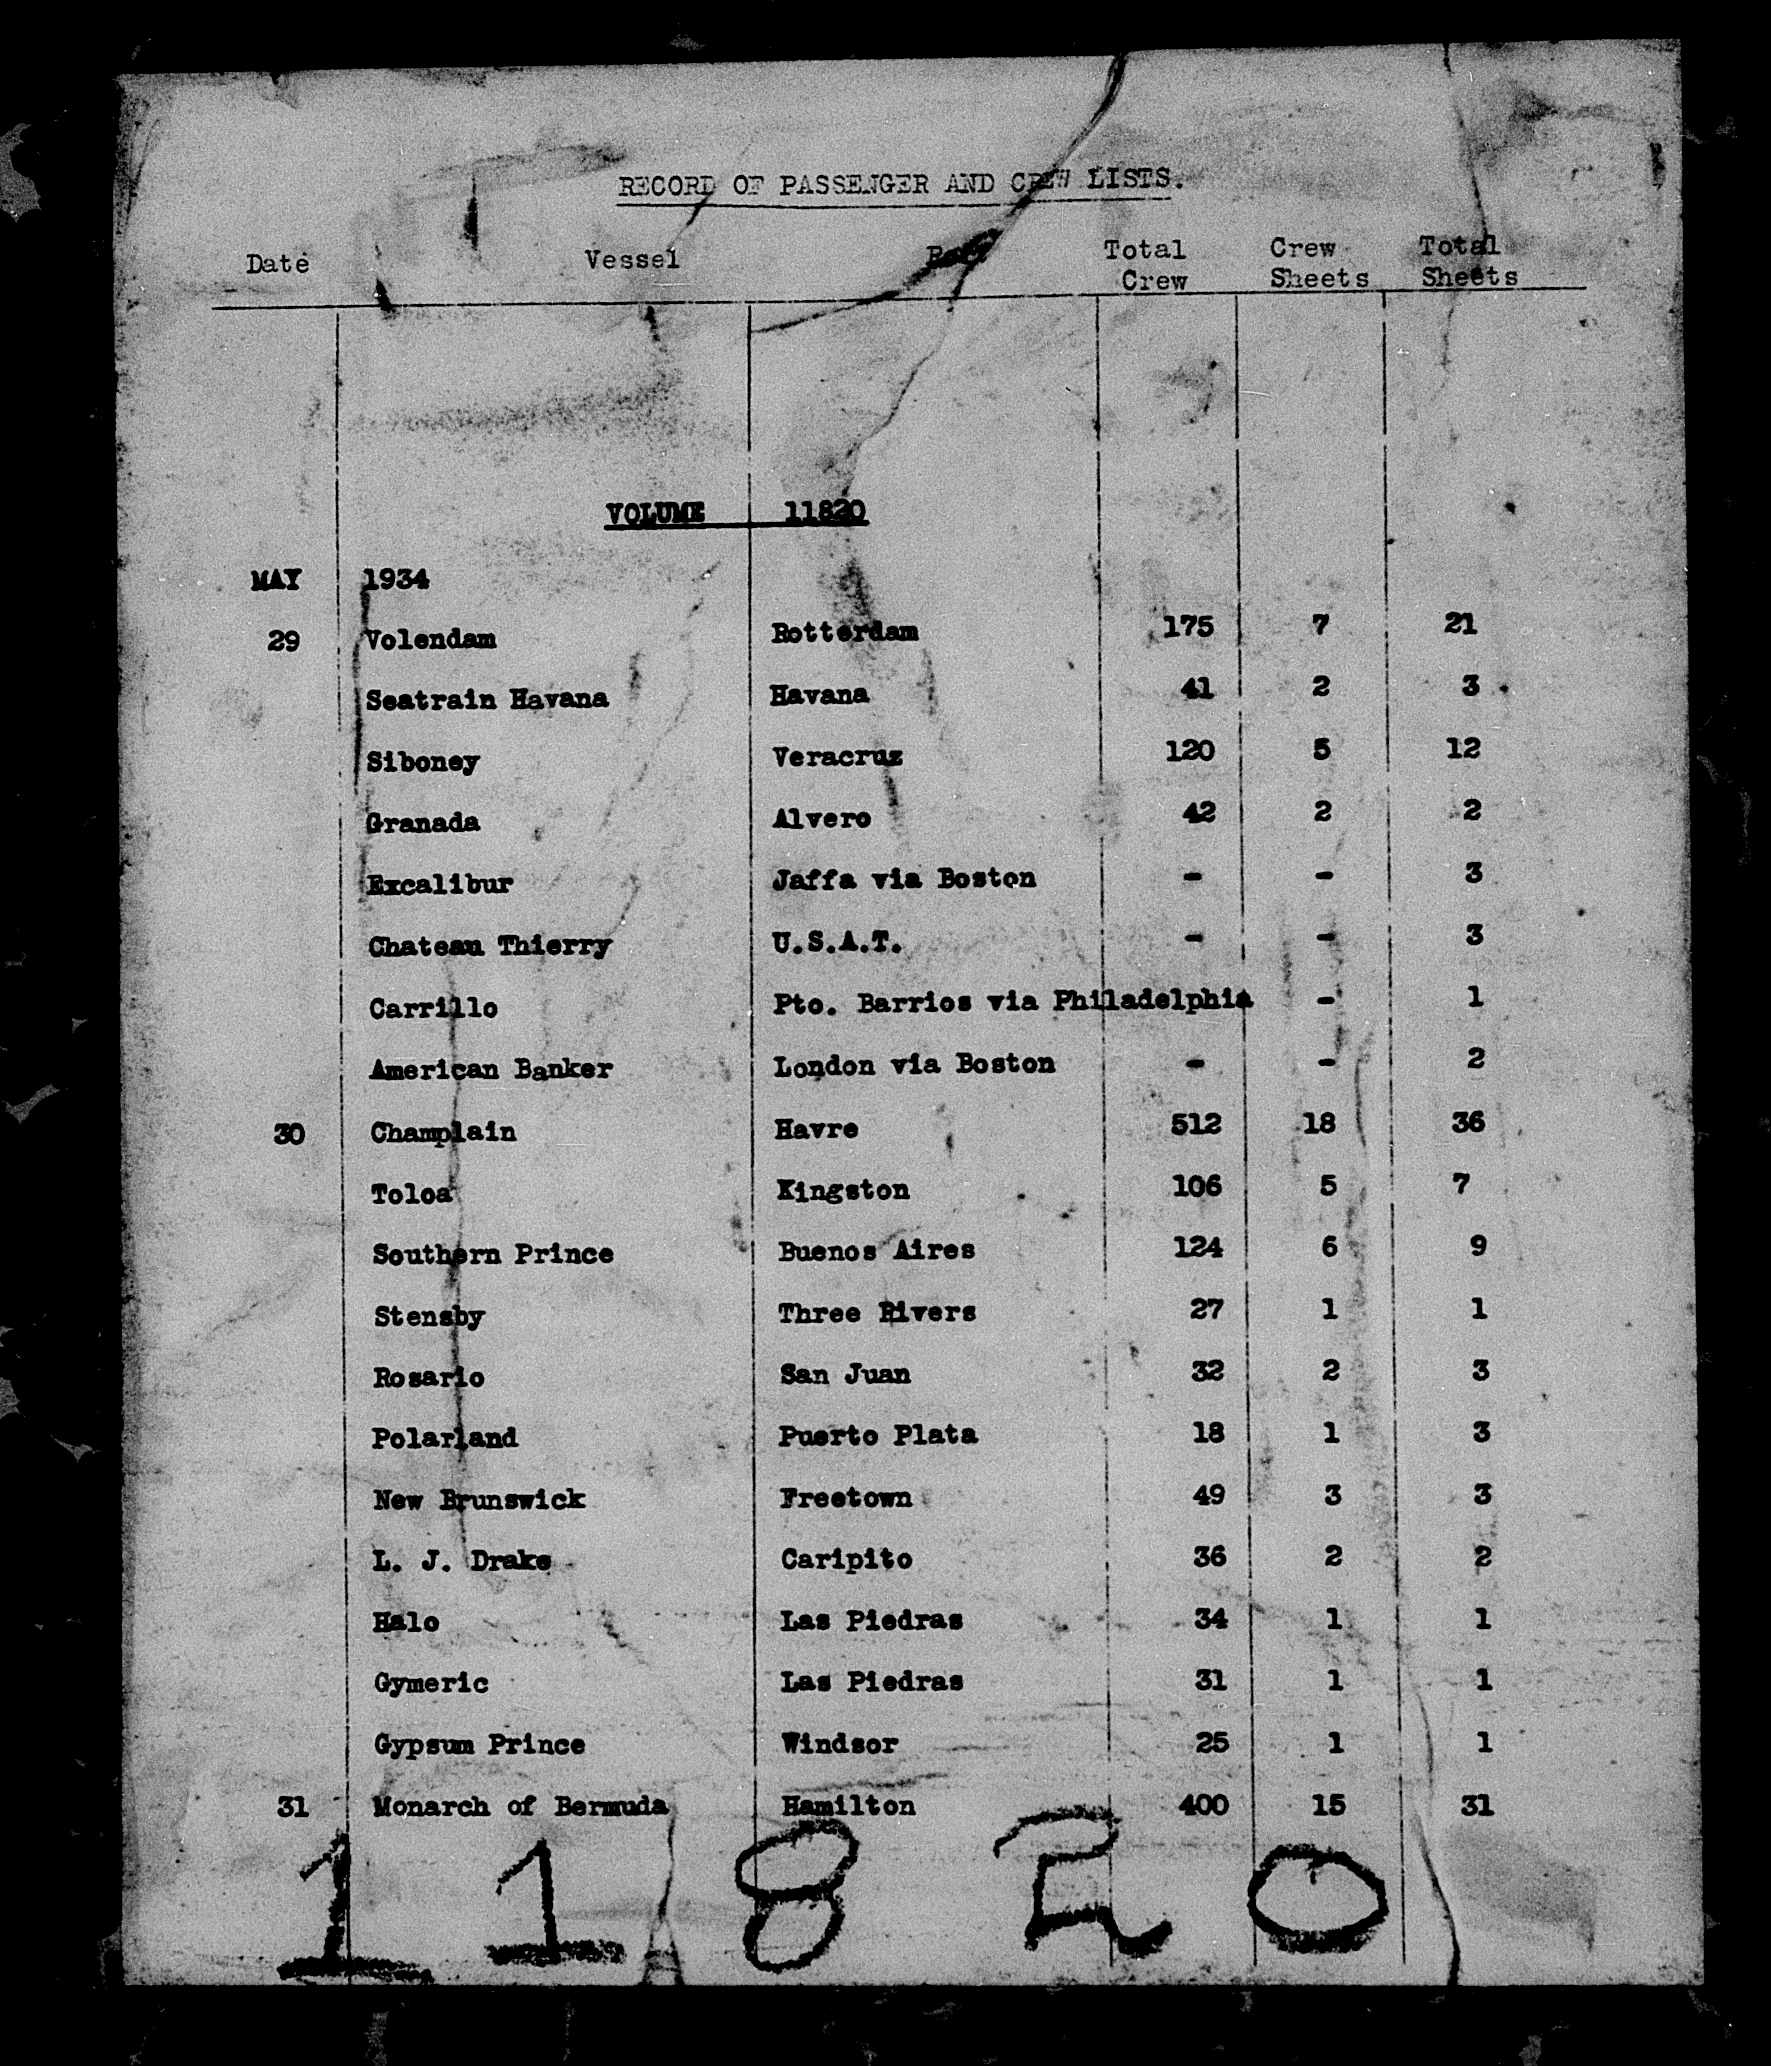 RECORD OF PASSENGER AND CREW LISTS.
Date Vessel Port Total Crew Crew Sheets Total Sheets
VOLUME 11820
MAY 1934
29 Volendam Rotterdam 175 7 21
Seatrain Havana Havana 41 2 3
Siboney Veracruz 120 5 12
Granada Alvero 42 2 2
Excalibur Jaffa via Boston - - 3
Chateau Thierry U.S.A.T. - - 3
Carrillo Pto. Barrios via Philadelphia - 1
American Banker London via Boston - - 2
30 Champlain Havre 512 18 36
Toloa Kingston 106 5 7
Southern Prince Buenos Aires 124 6 9
Stensby Three Rivers 27 1 1
Rosario San Juan 32 2 3
Polarland Puerto Plata 18 1 3
New Brunswick Freetown 49 3 3
L. J. Drake Caripito 36 2 2
Halo Las Piedras 34 1 1
Gymeric Las Piedras 31 1 1
Gypsum Prince Windsor 25 1 1
31 Monarch of Bermuda Hamilton 400 15 31
11820